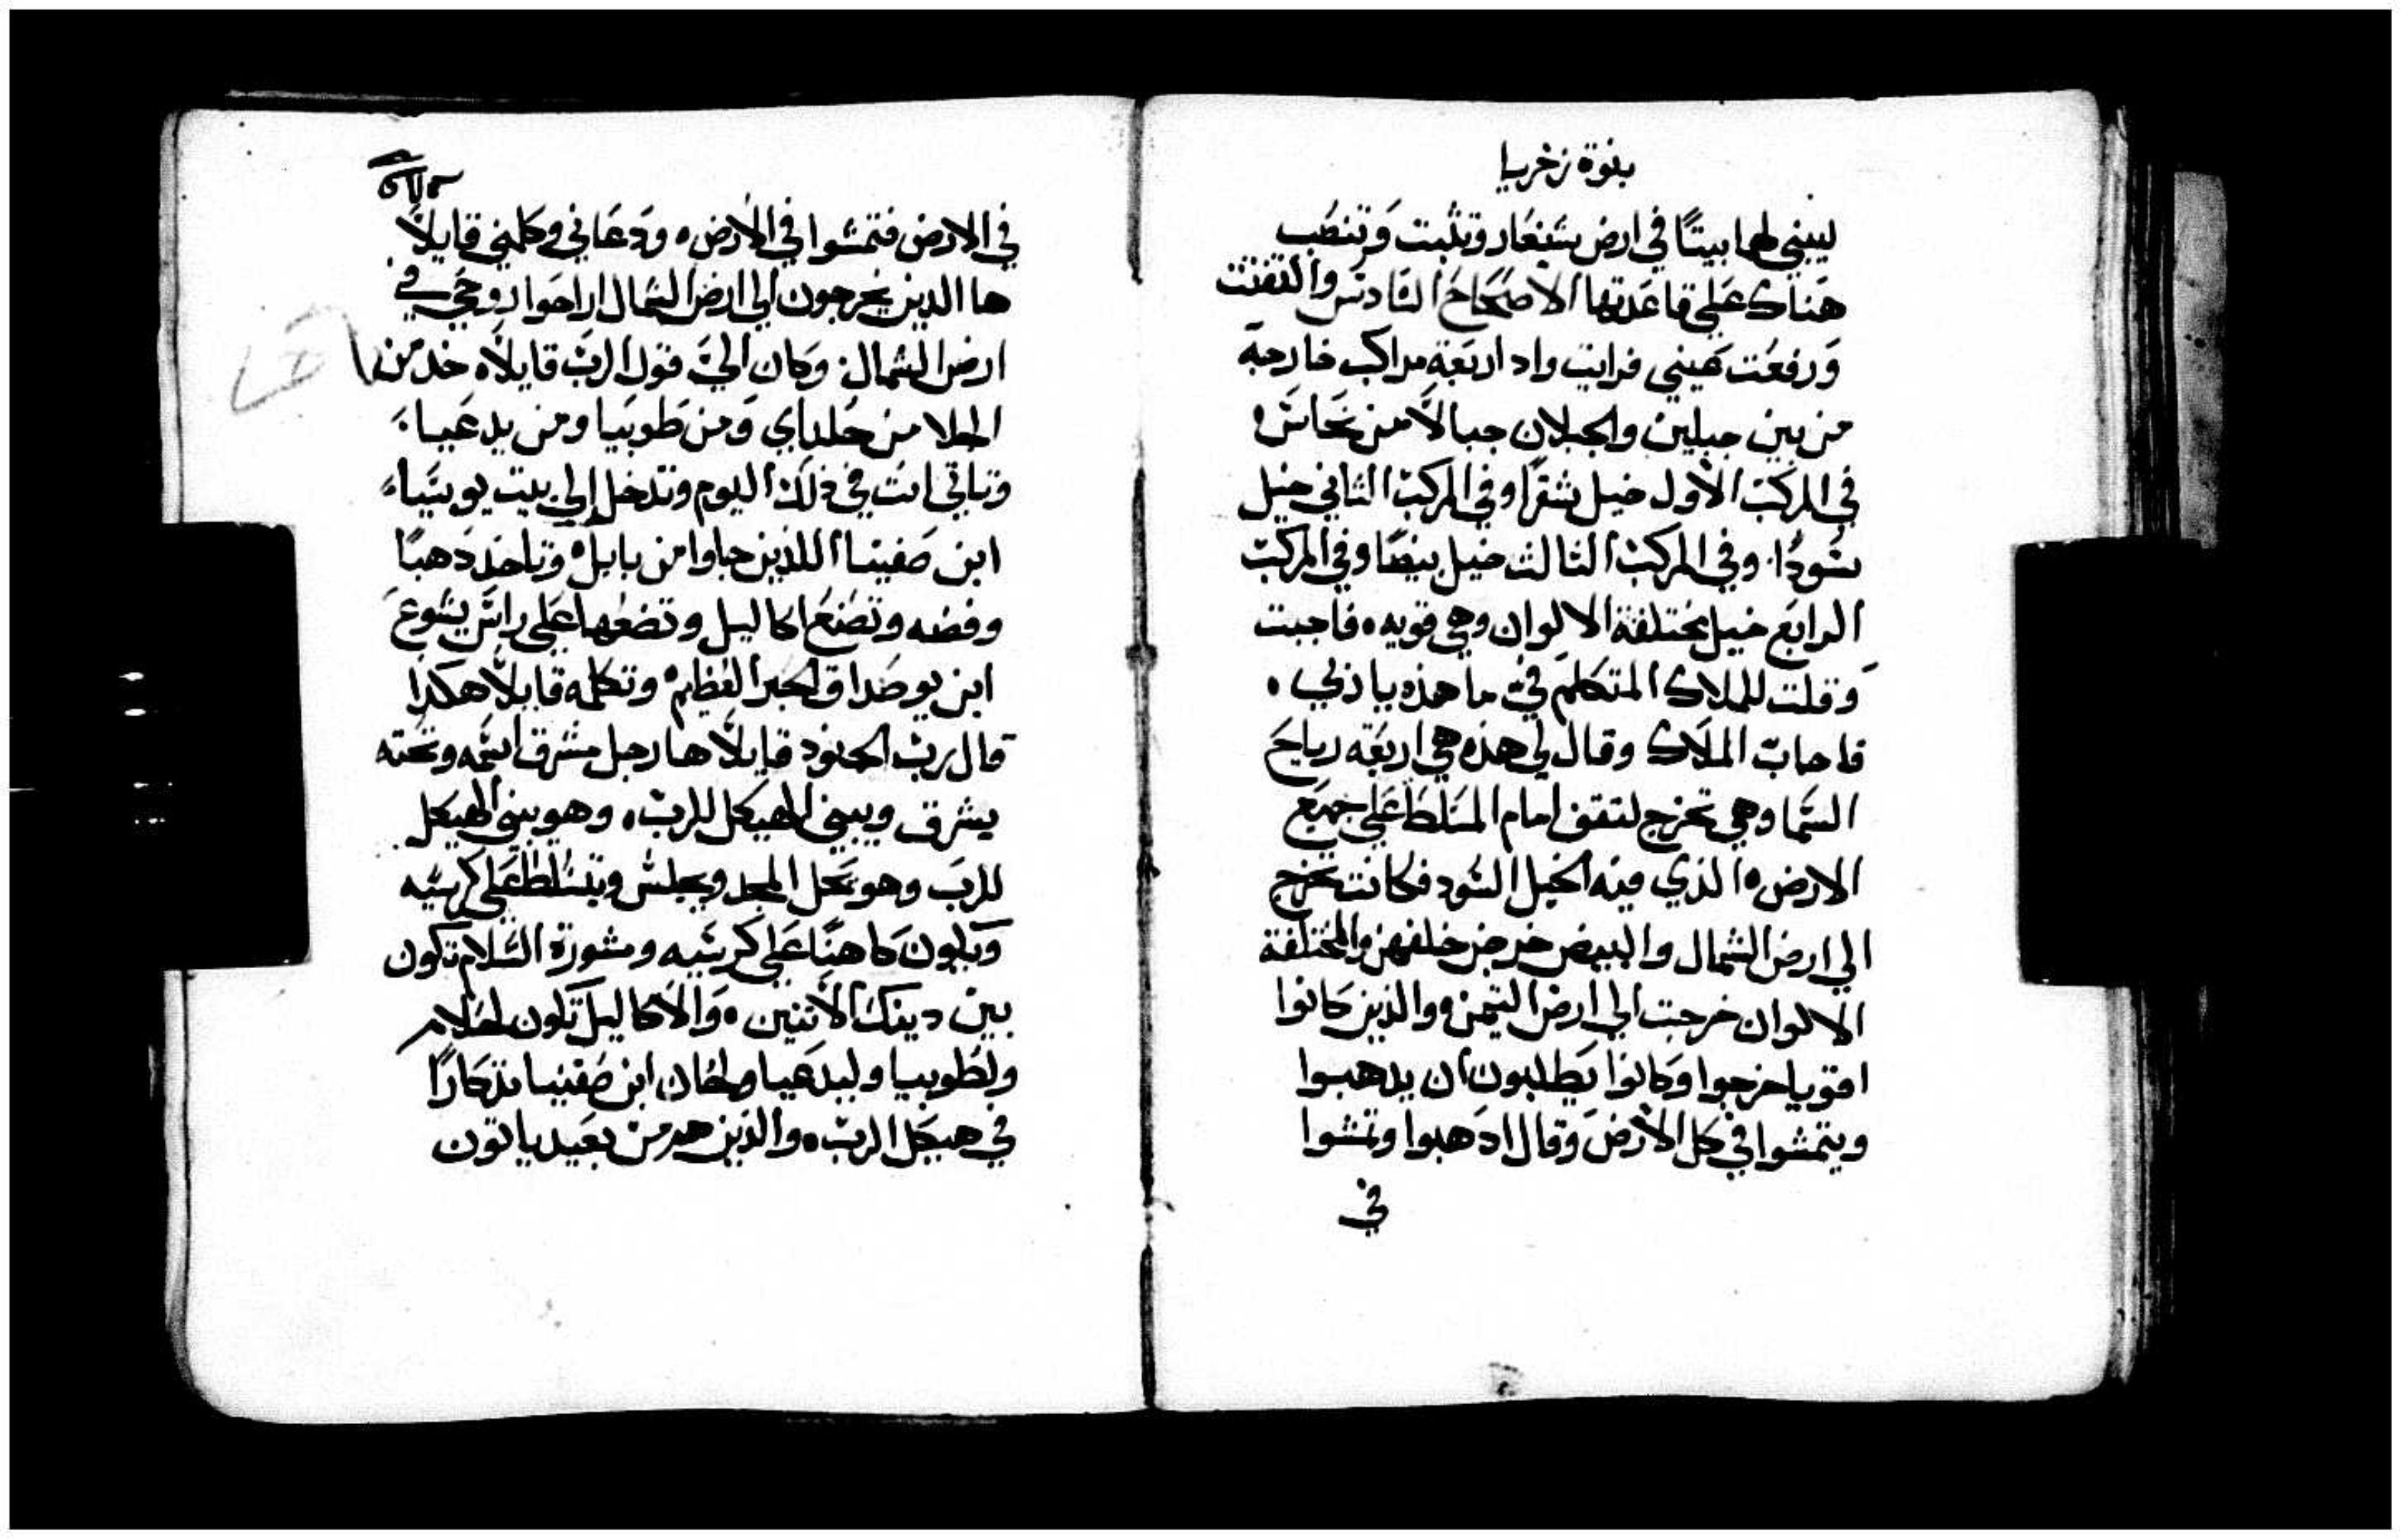 بنوة زخريا
ليبني لها بيتًا في ارض شنعار وتثبت وتنصب
هناك على قاعدتها الاصحاح السادس والتفتت
ورفعت عيني فرايت واد اربعة مراكب خارجة
من بين جبلين والجبلان جبالاً من نحاس،
في المركب الأول خيل شقرًا وفي المركب الثاني خيل
سُودًا. وفي المركب الثالث خيل بيضًا وفي المركب
الرابع خيل مختلفة الالوان وهي قويه، فاجبت
وقلت للملاك المتكلم فيّ ما هذه يا ربي.
فاجاب الملاك وقال لي هذه هي اربعة رياح
السما وهي تخرج لتقف امام المتسلط على جميع
الارض، الذي فيه الخيل السود فكانت تخرج
الي ارض الشمال والبيض خرجن خلفهن والمختلفة
الالوان خرجت الي ارض التيمن، والذين كانوا
اقويا خرجوا وكانوا يطلبون ان يدهبوا
ويتمشوا في كل الارض وقال ادهبوا وتمشوا
في
في الارض فتمشوا في الارض، ودعاني وكلمني قايلاً
ها الدين يخرجون الي ارض الشمال اراحوا روحي في
ارض الشمال. وكان اليّ قول الرب قايلاً، خد من
الجلا من حلداي ومن طوبيا ومن يدعيا،
وتاتي انت في ذلك اليوم وتدخل إلي بيت يوسيا،
ابن صفينا اللذين جاوا من بابل، وتاخد دهبًا
وفضه وتصنع اكاليل وتضعها على راس يسوع
ابن يوصداق الحبر العظيم، وتكلمه قايلاً هكدا
قال رب الجنود قايلاً ها رجل مشرق اسمه وتحته
يشرق ويبني الهيكل للرب، وهو يبني الهيكل
للرب وهو يحل المجد ويجلس ويتسلط على كرسيه
ويكون كاهنًا على كرسيه ومشورة السلام تكون
بين دينك الأتنين، والأكاليل تكون لحلام
ولطوبيا وليدعيا ولحان ابن صفينيا تدكارًا
في هيكل الرب، والذين هم من بعيد ياتون